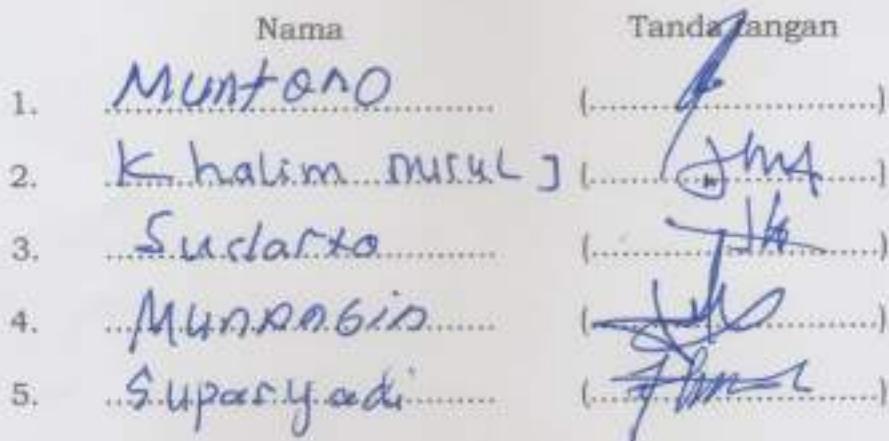 Nama Tanda tangan
1. Muntono (..........)
2. Khalim nurul J (..........)
3. Sudarto (..........)
4. (..........)
5. Suparyadi (..........)